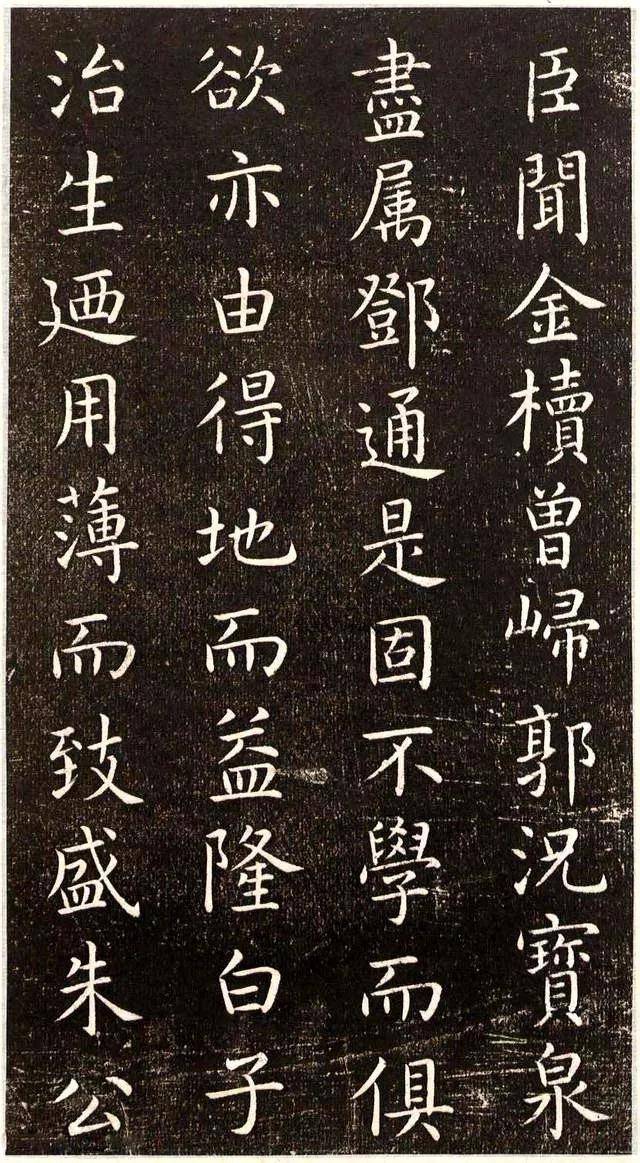 臣聞金櫝曽㱕郭況寶泉
盡属鄧通是固不學而俱
欲亦由得地而益隆白子
治生廼用薄而致盛朱公